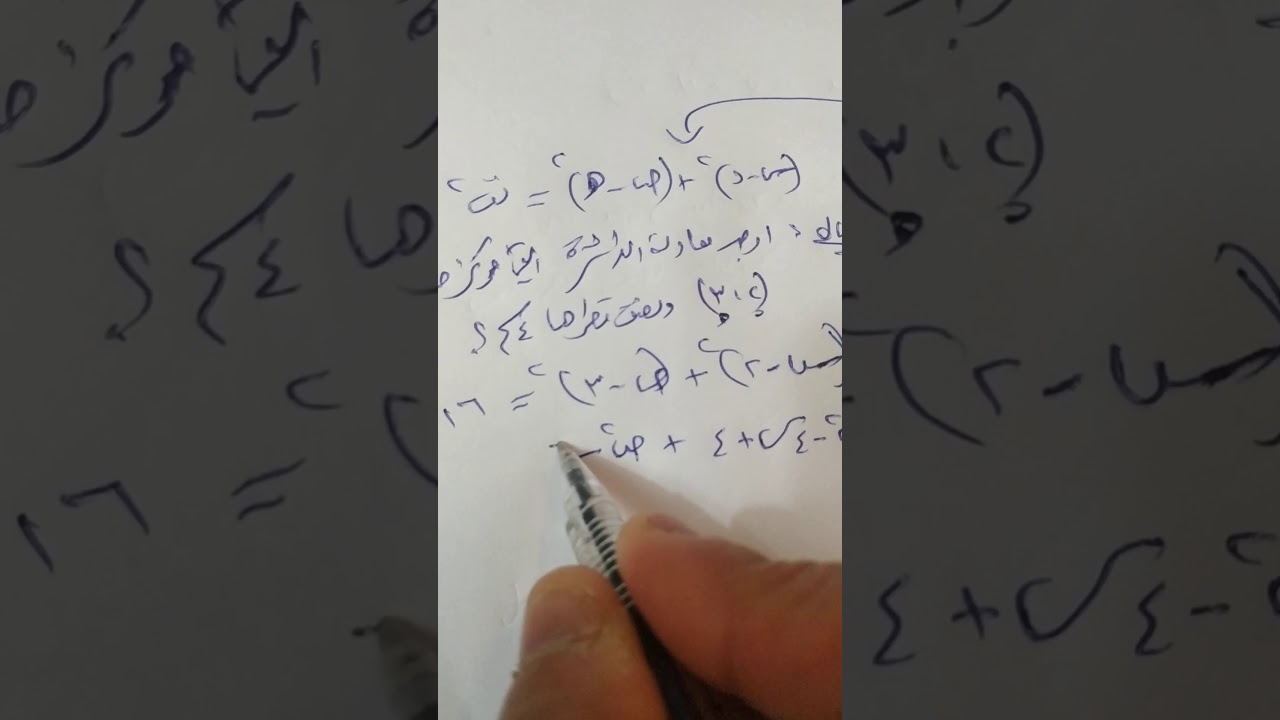 (س-د)² + (ص-هـ)² = نق²
مثال : اوجد معادلة الدائرة التي مركزها
(٢، ٣) ونصف قطرها ٤ ؟
(س-٢)² + (ص-٣)² = ١٦
-٤س+٤ + ص² -